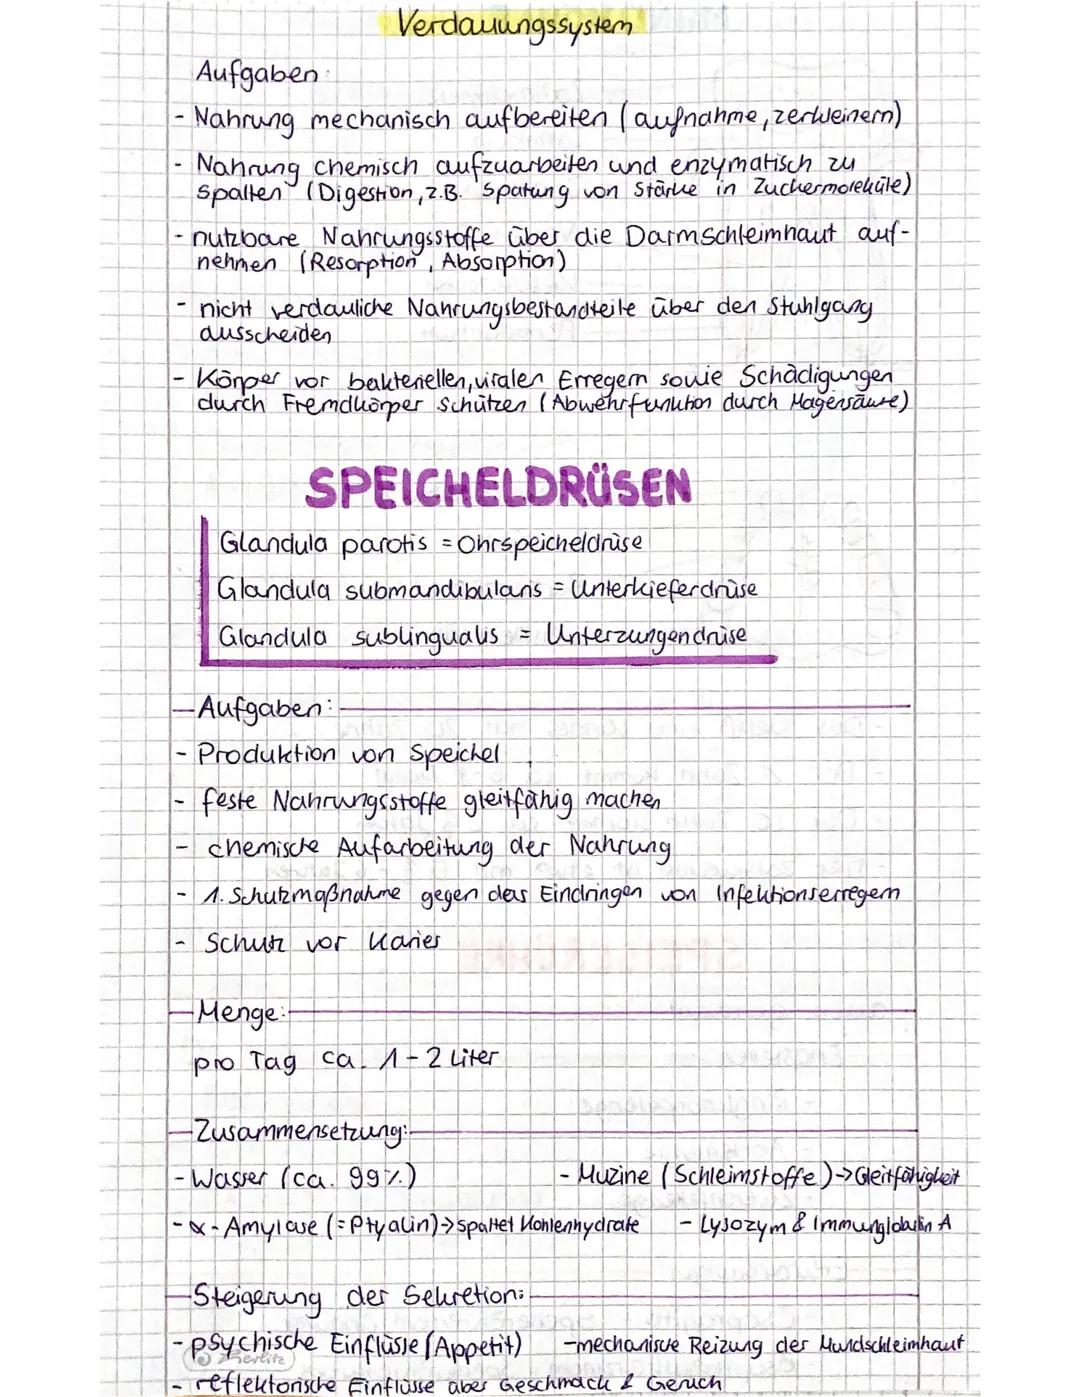 Verdauungssystem
Aufgaben:
- Nahrung mechanisch aufbereiten (aufnahme, zerkleinern)
- Nahrung chemisch aufzuarbeiten und enzymatisch zu
spalten (Digestion, z.B. Spaltung von Stärke in Zuckermoleküle)
- nutzbare Nahrungsstoffe über die Darmschleimhaut auf-
nehmen (Resorption, Absorption)
- nicht verdauliche Nahrungsbestandteile über den Stuhlgang
ausscheiden
- Körper vor bakteriellen, viralen Erregern sowie Schädigungen
durch Fremdkörper schützen (Abwehrfunktion durch Magensäure)
SPEICHELDRÜSEN
Glandula parotis = Ohrspeicheldrüse
Glandula submandibularis = Unterkieferdrüse
Glandula sublingualis = Unterzungendrüse
Aufgaben:
- Produktion von Speichel
- feste Nahrungsstoffe gleitfähig machen
- chemische Aufarbeitung der Nahrung
- 1. Schutzmaßnahme gegen das Eindringen von Infektionserregern
- Schutz vor Karies
Menge:
pro Tag ca. 1-2 Liter
Zusammensetzung:
- Wasser (ca. 99%) - Muzine (Schleimstoffe) -> Gleitfähigkeit
- α-Amylase (= Ptyalin) -> spaltet Kohlenhydrate - Lysozym & Immunglobulin A
Steigerung der Sekretion:
- psychische Einflüsse (Appetit) - mechanische Reizung der Mundschleimhaut
- reflektorische Einflüsse über Geschmack & Geruch